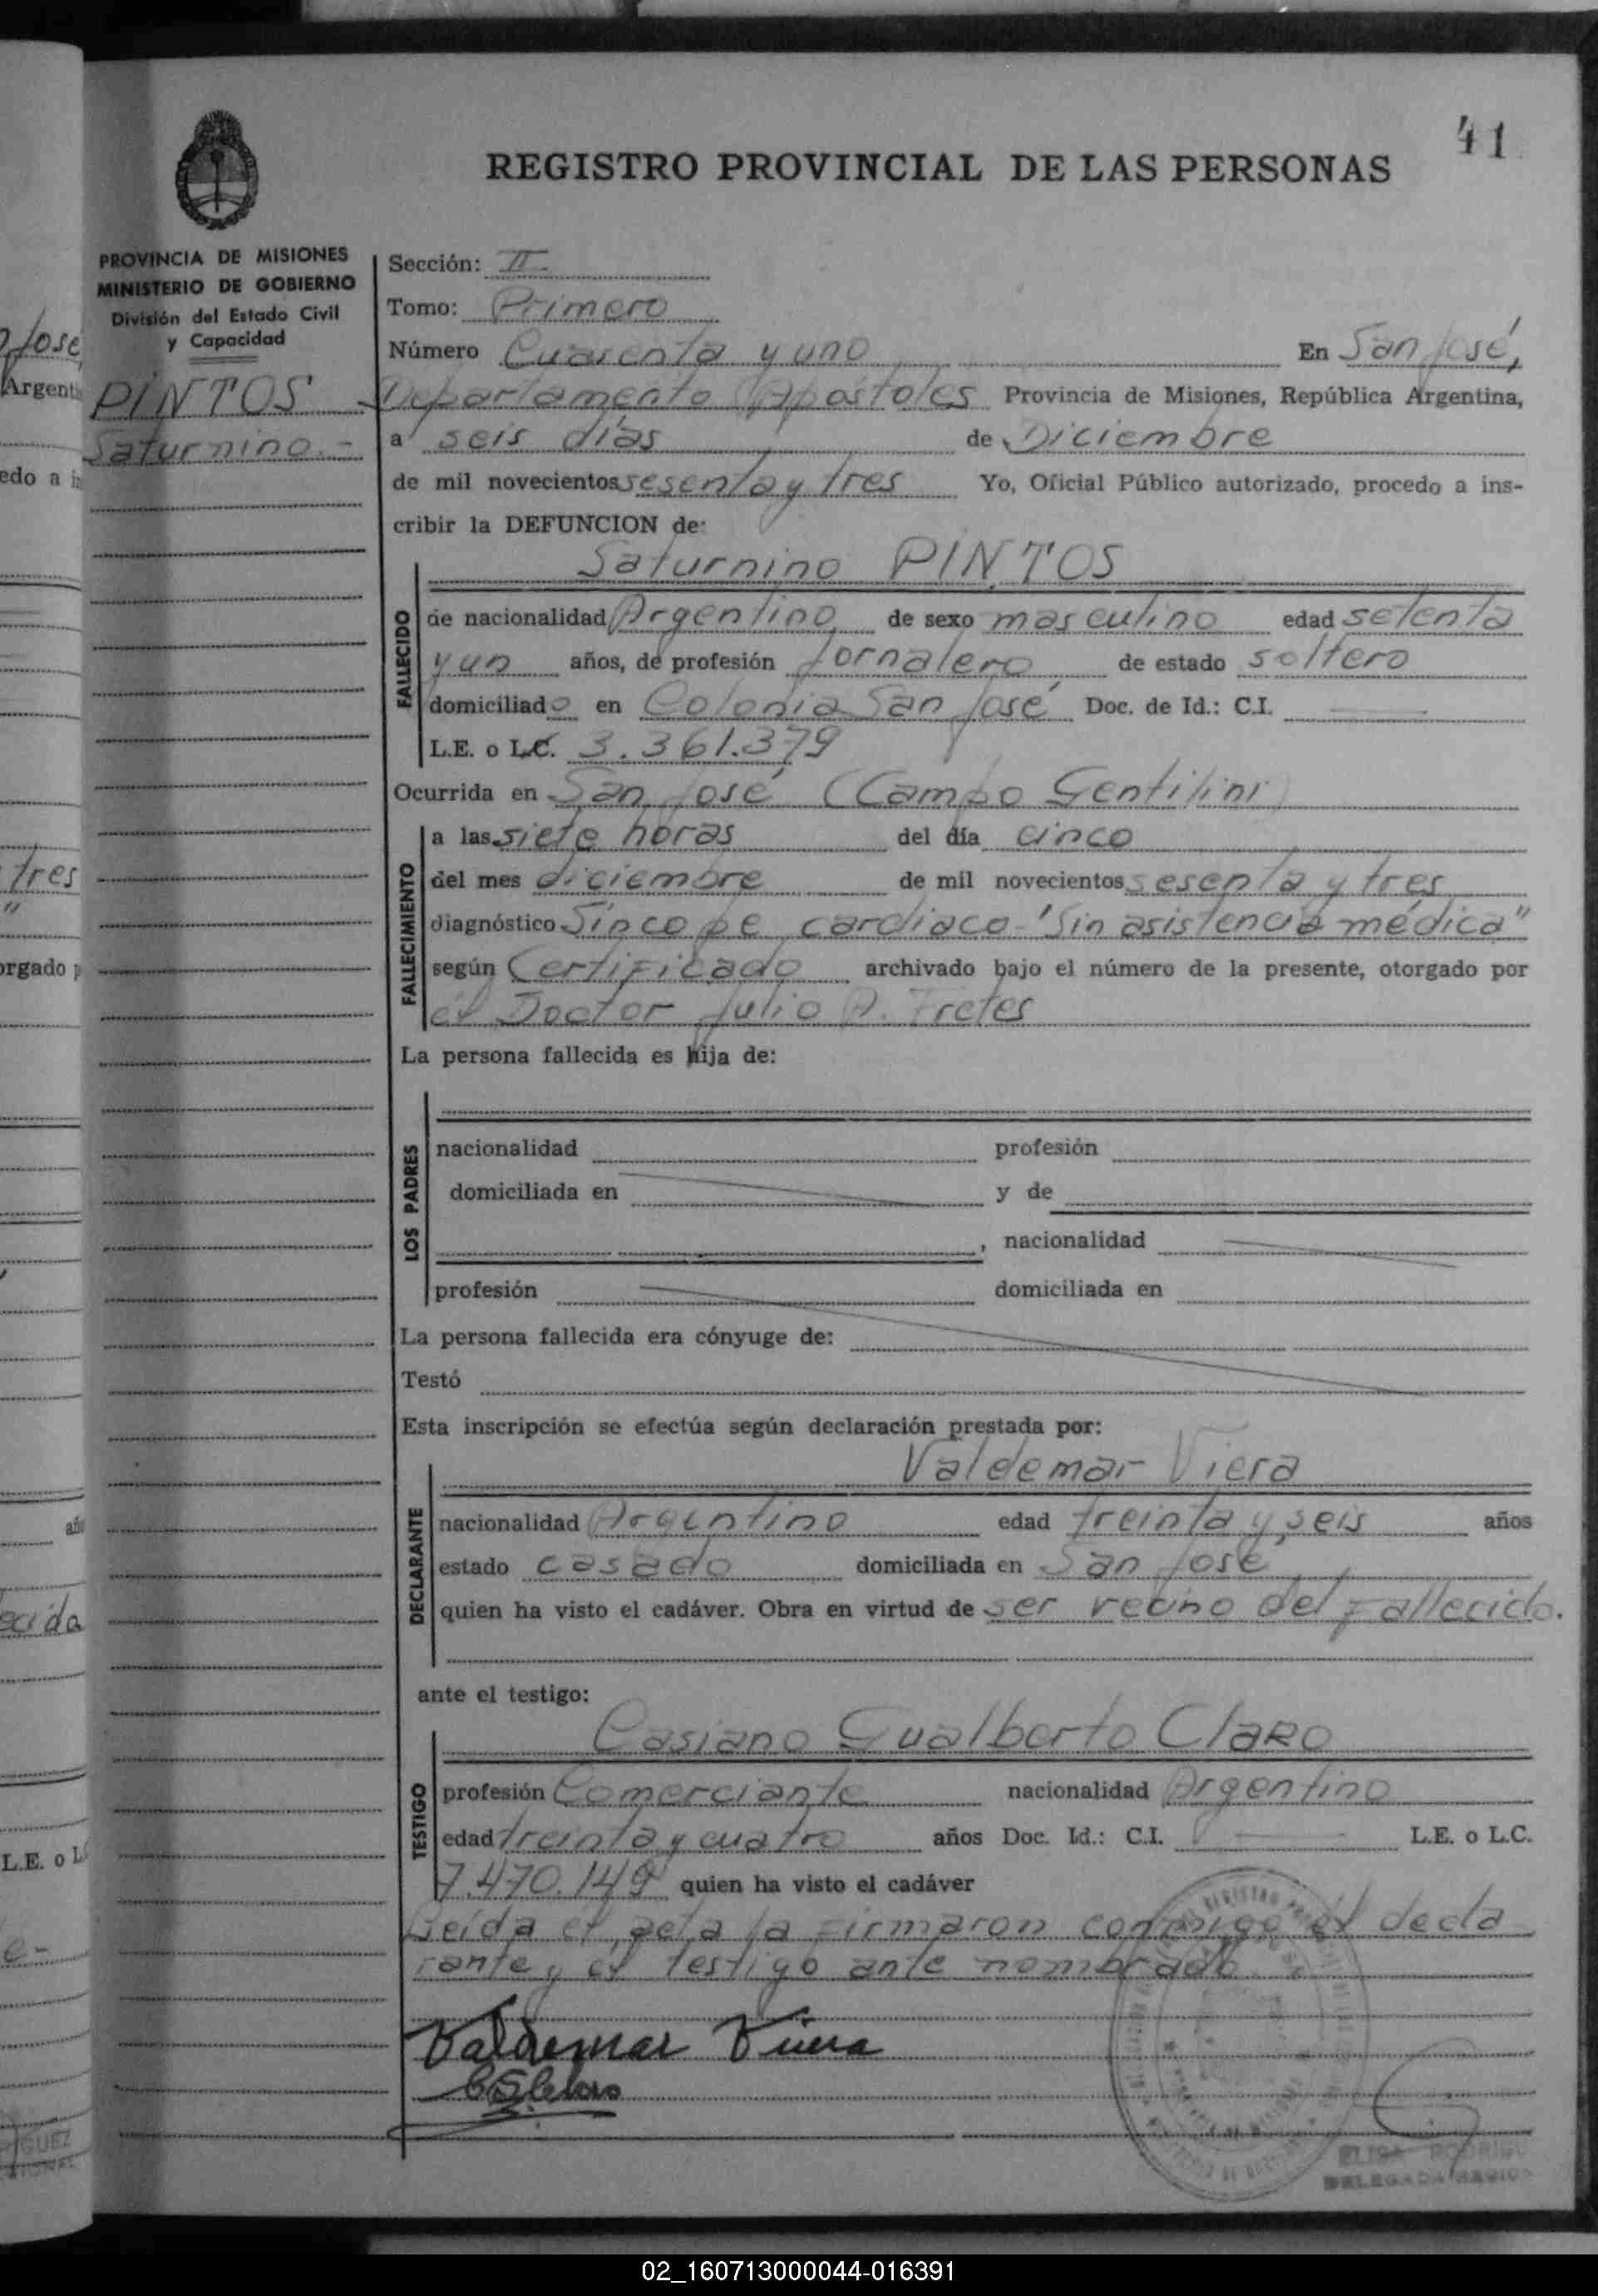 41
REGISTRO PROVINCIAL DE LAS PERSONAS
PROVINCIA DE MISIONES
MINISTERIO DE GOBIERNO
División del Estado Civil
y Capacidad
PINTOS
Saturnino.-
Sección: II
Tomo: Primero
Número Cuarenta y uno En San José,
Departamento Apóstoles Provincia de Misiones, República Argentina,
a seis días de Diciembre
de mil novecientos sesenta y tres Yo, Oficial Público autorizado, procedo a ins-
cribir la DEFUNCION de:
Saturnino PINTOS
FALLECIDO
de nacionalidad Argentino de sexo masculino edad setenta
y un años, de profesión Jornalero de estado soltero
domiciliado en Colonia San José Doc. de Id.: C.I.
L.E. o L.C. 3.361.379
Ocurrida en San José (Campo Gentilini)
FALLECIMIENTO
a las siete horas del día cinco
del mes diciembre de mil novecientos sesenta y tres
diagnóstico Sincope cardiaco-"Sin asistencia médica"
según Certificado archivado bajo el número de la presente, otorgado por
el Doctor Julio A. Fretes
La persona fallecida es hija de:
LOS PADRES
nacionalidad profesión
domiciliada en y de
, nacionalidad
profesión domiciliada en
La persona fallecida era cónyuge de:
Testó
Esta inscripción se efectúa según declaración prestada por:
Valdemar Viera
DECLARANTE
nacionalidad Argentino edad treinta y seis años
estado casado domiciliada en San José
quien ha visto el cadáver. Obra en virtud de ser vecino del Fallecido.
ante el testigo:
Casiano Gualberto Claro
TESTIGO
profesión Comerciante nacionalidad Argentino
edad treinta y cuatro años Doc. Id.: C.I. L.E. o L.C.
7.470.149 quien ha visto el cadáver
Leída el acta la firmaron conmigo el decla
rante y el testigo ante nombrado
Valdemar Viera
ELISA RODRIGU
DELEGADA
02_160713000044-016391